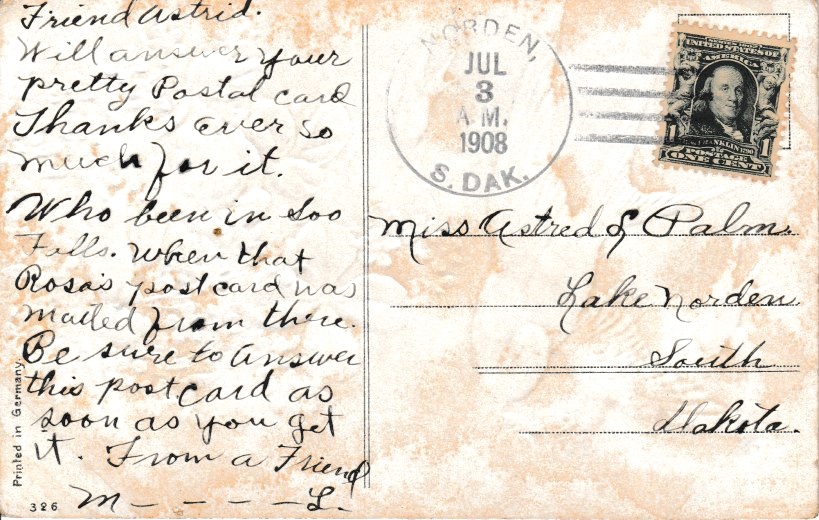 Friend Astrid.
Will answer your
pretty Postal card
Thanks ever so
much for it.
Who been in Soo
Falls. When that
Rosa's postcard was
mailed from there.
Be sure to answer
this postcard as
soon as you get
it. From a Friend
M - - - - L.
Printed in Germany.
326
NORDEN,
JUL
3
A M.
1908
S. DAK.
UNITED STATES OF
AMERICA
FRANKLIN
1 POSTAGE 1
ONE CENT
Miss Astred L Palm.
Lake Norden
South
Dakota.